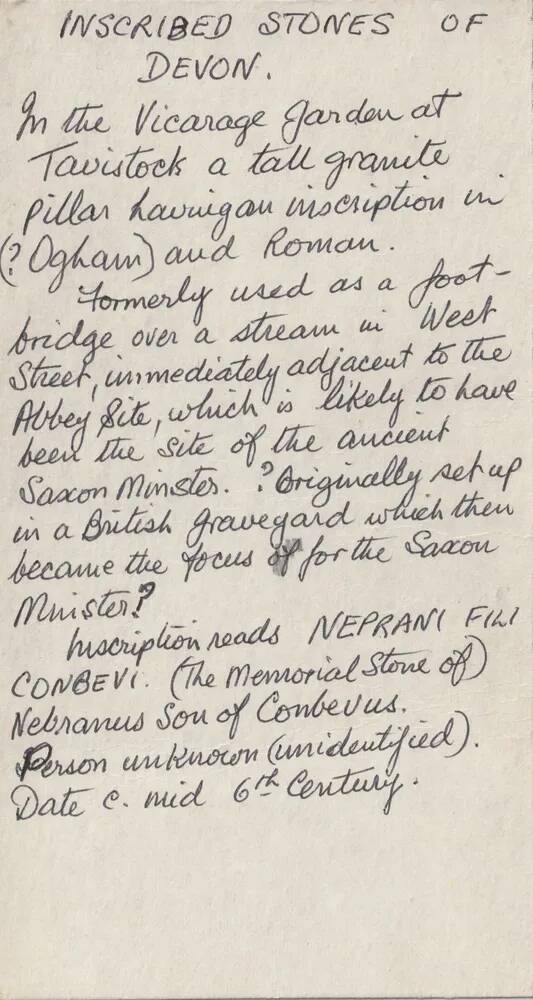 INSCRIBED STONES OF
DEVON.
In the Vicarage Garden at
Tavistock a tall granite
pillar having an inscription in
(? Ogham) and Roman.
Formerly used as a foot-
bridge over a stream in West
Street, immediately adjacent to the
Abbey Site, which is likely to have
been the site of the ancient
Saxon Minster. ? Originally set up
in a British graveyard which then
became the focus of for the Saxon
Minster?
Inscription reads NEPRANI FILI
CONBEVI. (The Memorial Stone of)
Nebranus Son of Conbevus.
Person unknown (unidentified).
Date c. mid 6th Century.